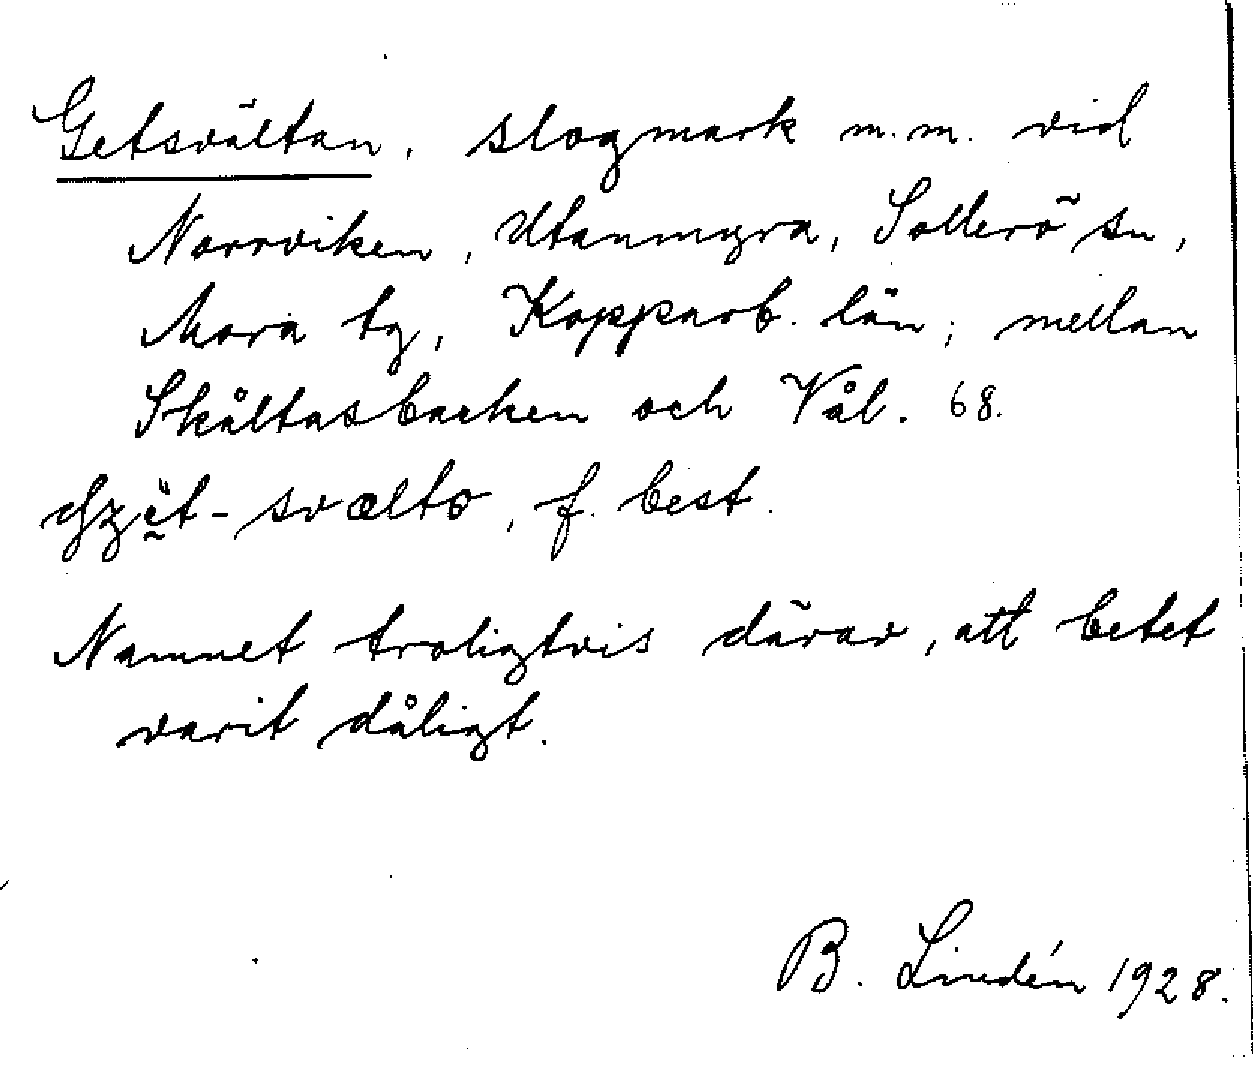 Getsvältan, slogmark m.m. vid
Norrviken, Utanmyra, Sollerö sn,
Mora tg, Kopparb. län; mellan
Skåltasbacken och Vål. 68.
-svælto, f. best.
Namnet troligtvis därav, att betet
varit dåligt.
B. Lindén 1928.